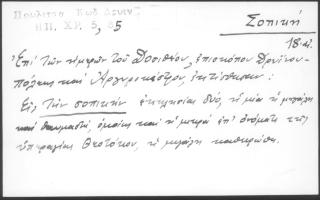 Πουλίτσα Κωδ Δρυϊν.
ΗΠ. ΧΡ. 5, 85
Σοπική
18 αἰ.
Ἐπί τῶν ἡμερῶν τοῦ Δοσιθέου, ἐπισκόπου Δρυϊνου-
πόλεως καί Ἀργυροκάστρου, ἐκτίσθησαν:
Εἰς τήν σοπικήν ἐκκλησίαι δύο, ἡ μία ἡ μεγάλη
καί θαυμαστή, ὁμοίως καί ἡ μικρά ἐπ' ὀνόματι τῆς
ὑπεραγίας Θεοτόκου, ἡ μεγάλη καθιερώθη.